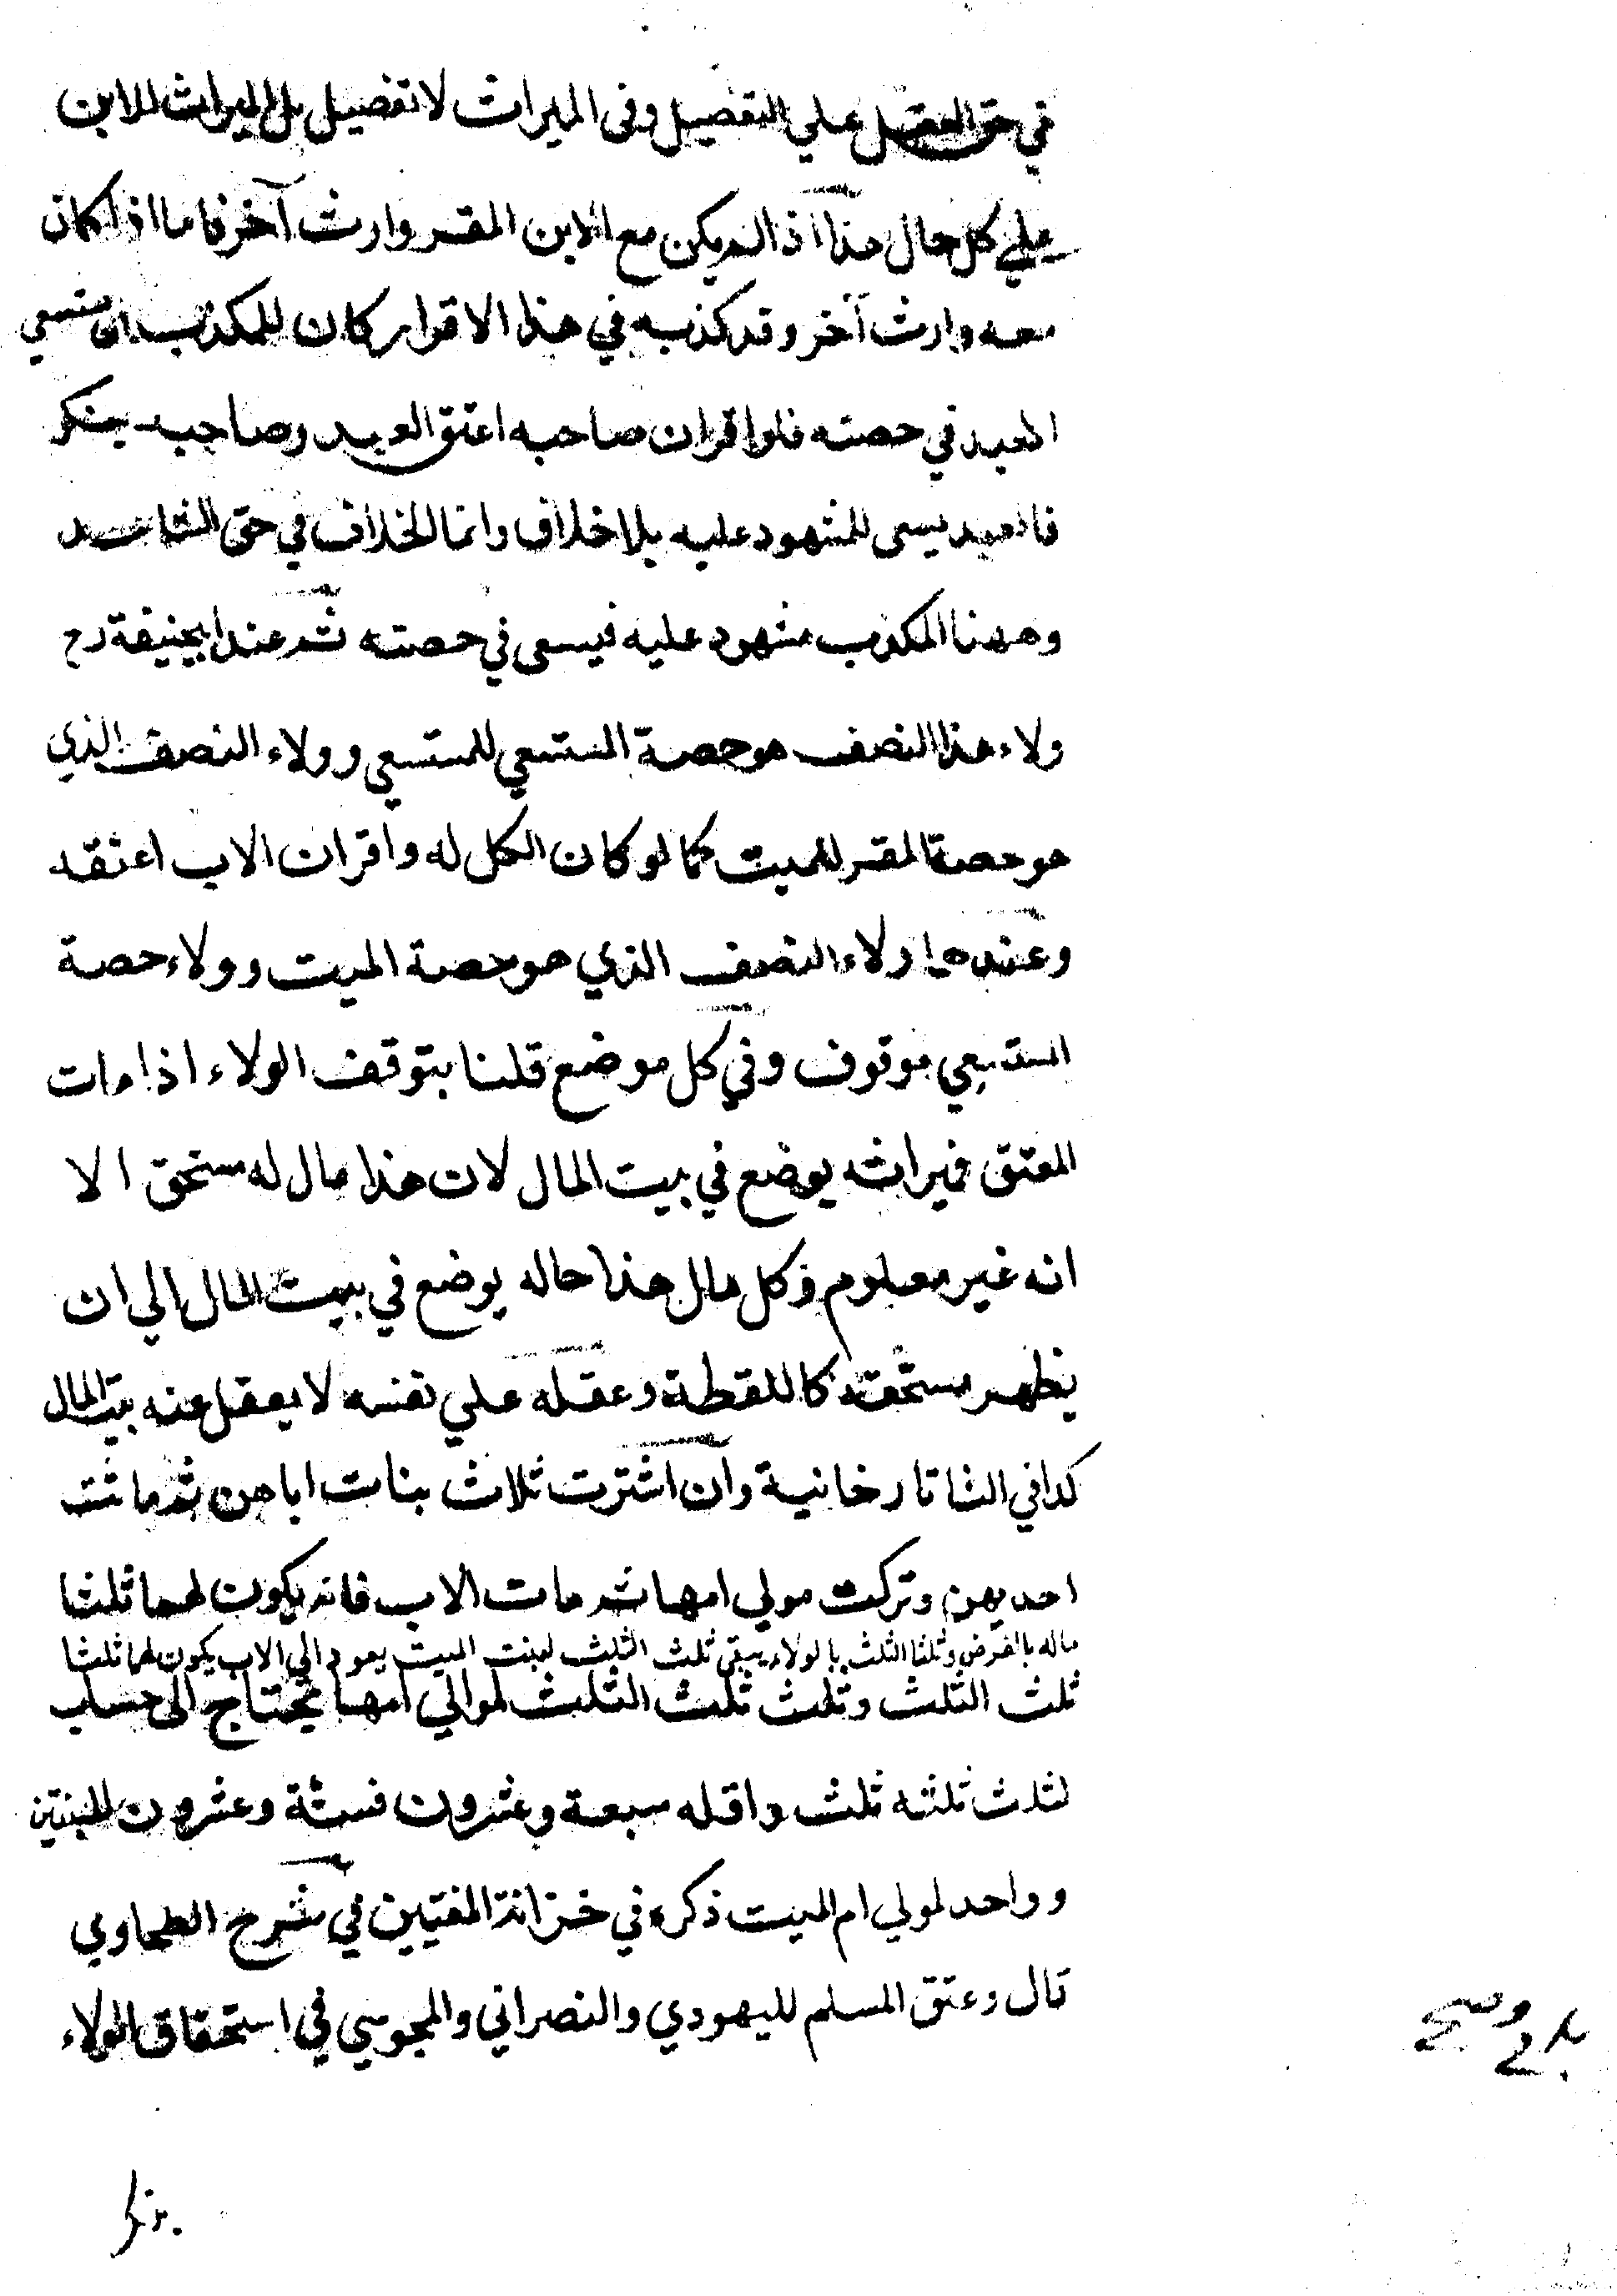 في حق العقل علي التفصيل وفى الميراث لا تفصيل بل الميراث للابن
علي كل حال هذا اذا لم يكن مع الابن المقر وارث آخر فاما اذا كان
معه وارث آخر وقد كذبه في هذا الاقرار كان للمكذب ان يستسعي
العبد في حصته فلو اقر ان صاحبه اعتق العبد وصاحبه ينكر
فالعبد يسعى للمشهود عليه بلا خلاف وانما الخلاف في حق الشاهد
وههنا المكذب مشهود عليه فيسعى في حصته ثم عند ابيحنيفة رح
ولاء هذا النصف هو حصة المستسعي للمستسعي وولاء النصف الذي
هو حصة المقر للميت كما لو كان الكل له واقر ان الاب اعتقه
وعندهما ولاء النصف الذي هو حصة الميت وولاء حصة
المستسعي موقوف وفي كل موضع قلنا بتوقف الولاء اذا مات
المعتق فميراثه يوضع في بيت المال لان هذا مال له مستحق الا
انه غير معلوم وكل مال هذا حاله يوضع في بيت المال الي ان
يظهر مستحقه كاللقطة وعقله علي نفسه لا يعقل عنه بيت المال
كذا في التاتارخانية وان اشترت ثلاث بنات اباهن ثم ماتت
احديهن وتركت مولي امها ثم مات الاب فانه يكون لهما ثلثا
ماله بالفرض وثلثا الثلث بالولاء يبقى ثلث الثلث لبنت الميت يعود الي الاب يكون لهما ثلثا
ثلث الثلث وثلث ثلث الثلث لموالي امها يحتاج الى حساب
لثلث ثلثه ثلث واقله سبعة وعشرون فستة وعشرون للبنتين
وواحد لمولي ام الميت ذكره في خزانة المفتيين في شرح الطحاوي
قال وعتق المسلم لليهودي والنصراني والمجوسي في استحقاق الولاء